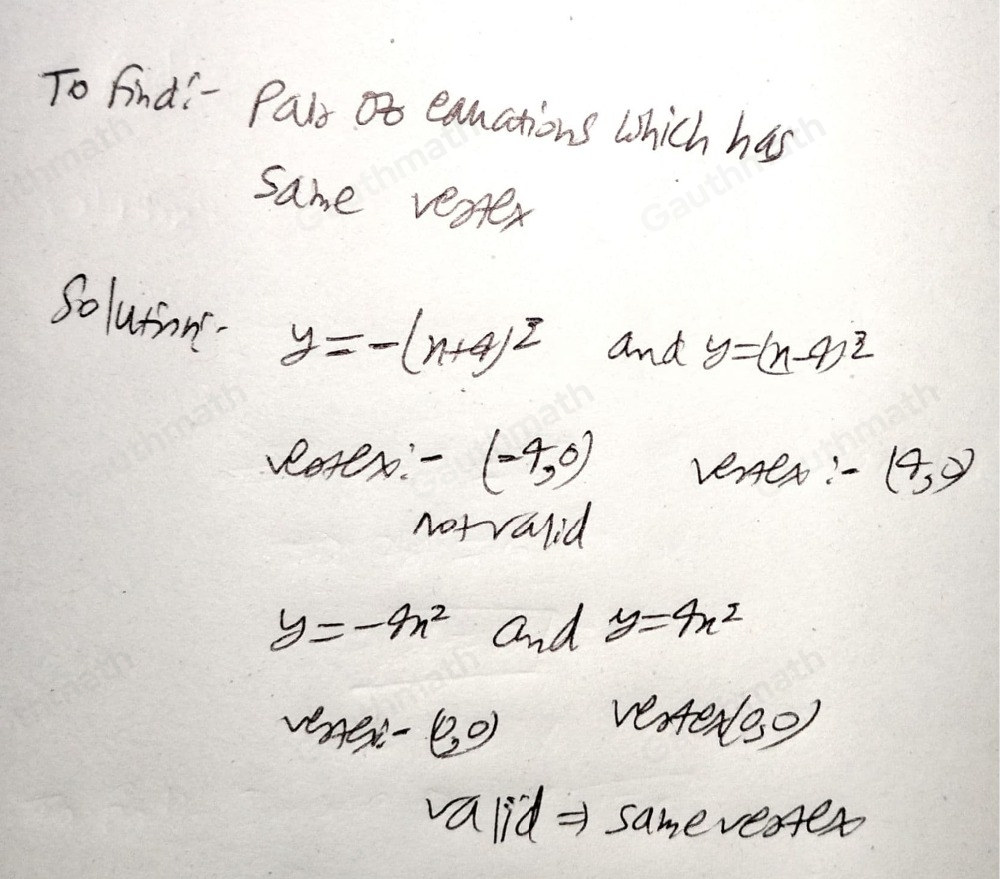 To find:- Pair of equations which has
same vertex
Solution:- y=-(x+4)² and y=(x-4)²
vertex:- (-4,0) vertex:- (4,0)
not valid
y=-4x² and y=4x²
vertex:- (0,0) vertex(0,0)
valid ⇒ same vertex
Gauthmath